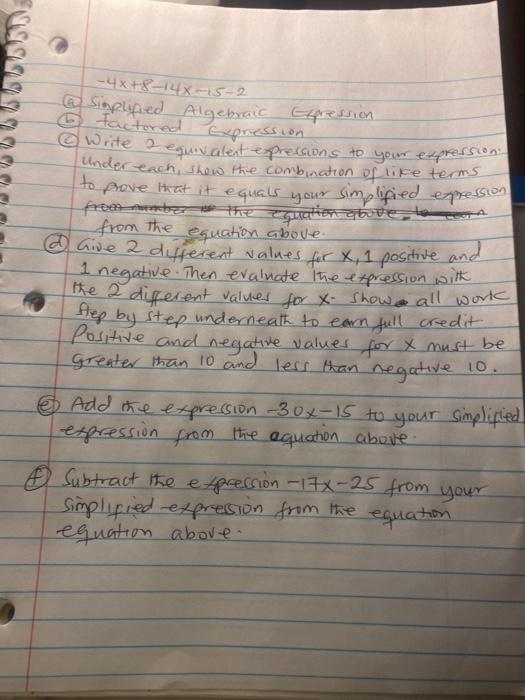 -4x+8-14x-15-2
(a) Simplified Algebraic Expression
(b) Factored Expression
(c) Write 2 equivalent expressions to your expression.
Under each, show the combination of like terms
to prove that it equals your simplified expression
from number the equation above.
from the equation above.
(d) Give 2 different values for x, 1 positive and
1 negative. Then evaluate the expression with
the 2 different values for x. Show all work
step by step underneath to earn full credit
Positive and negative values for x must be
greater than 10 and less than negative 10.
(e) Add the expression -30x-15 to your simplified
expression from the equation above.
(f) Subtract the expression -17x-25 from your
simplified expression from the equation
equation above.